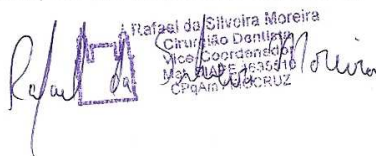 Rafael da Silveira Moreira
Cirurgião Dentista
Vice-Coordenador
CPqAM/FIOCRUZ
Rafael da Silveira Moreira